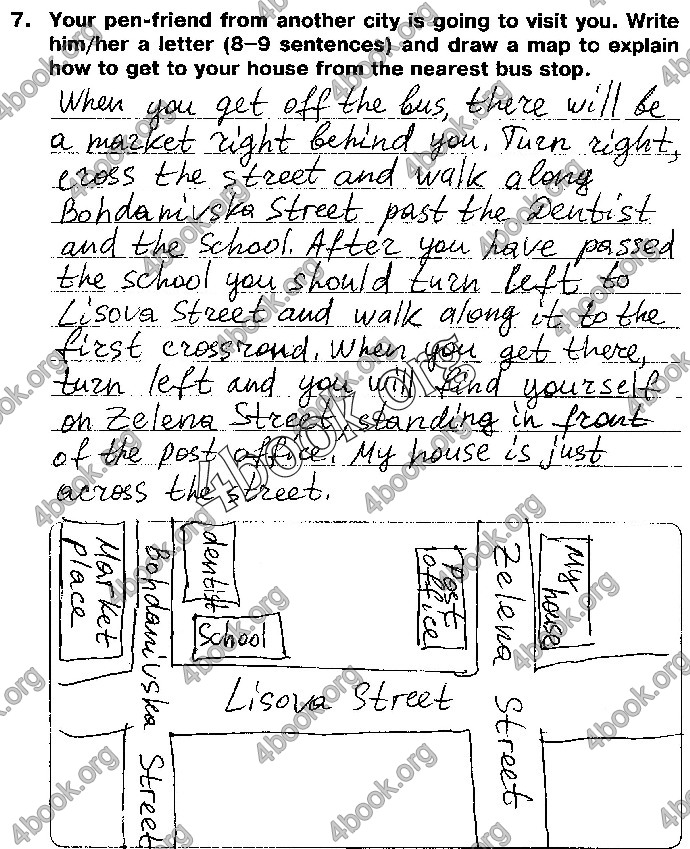 7. Your pen-friend from another city is going to visit you. Write
him/her a letter (8–9 sentences) and draw a map to explain
how to get to your house from the nearest bus stop.
When you get off the bus, there will be
a market right behind you. Turn right,
cross the street and walk along
Bohdanivska Street past the Dentist
and the school. After you have passed
the school you should turn left to
Lisova Street and walk along it to the
first crossroad. When you get there,
turn left and you will find yourself
on Zelena Street standing in front
of the post office. My house is just
across the street.
Market
place
Bohdanivska Street
dentist
School
Post
office
Zelena Street
My
house
Lisova Street
4book.org